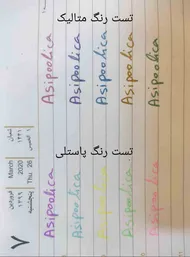 تست رنگ متالیک
Asipoolica
Asipoolica
Asipoolica
Asipoolica
Asipoolica
تست رنگ پاستلی
Asipoolica
Asipoolica
Asipoolica
Asipoolica
Asipoolica
۷
پنجشنبه
فروردین
۱۳۹۹
Thu 26
March
2020
۱۴۴۱